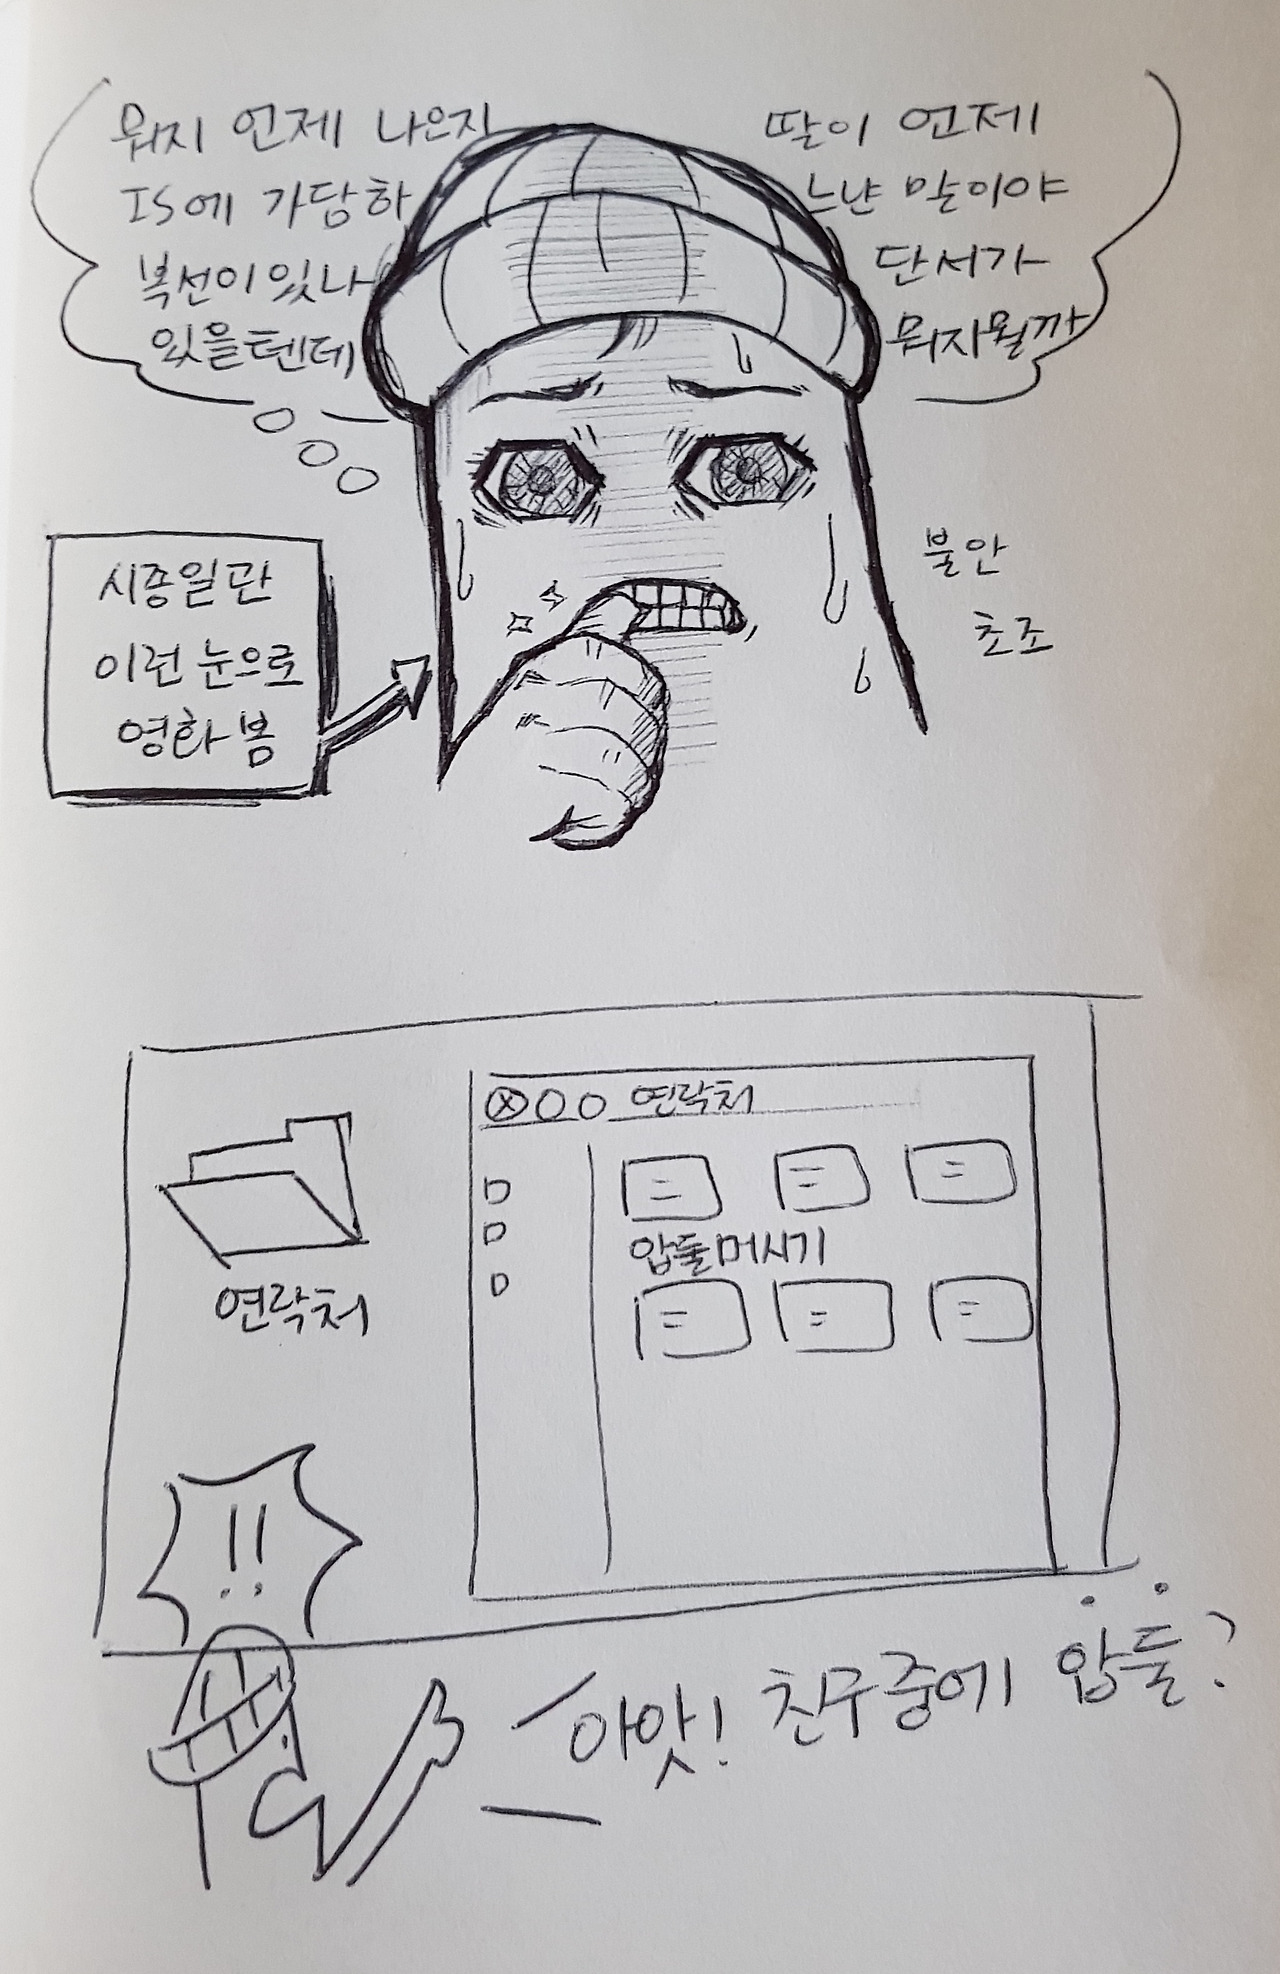 뭐지 언제 나오지 딸이 언제
IS에 가담하 느냔 말이야
복선이 있나 단서가
있을텐데 뭐지뭘까
시종일관
이런 눈으로
영화 봄
불안
초조
연락처
연락처
압둘 머시기
!!
아앗! 친구중에 압둘?